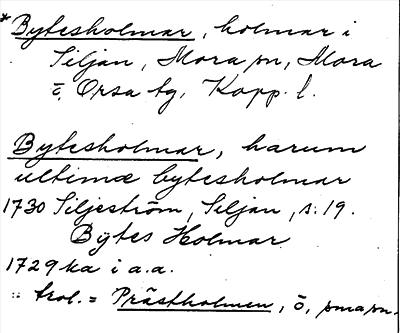 *Bytesholmar, holmar i
Siljan, Mora sn, Mora
o. Orsa tg, Kopp. l.
Bytesholmar, harum
ultimæ bytesholmar
1730 Siljeström, Siljan, s. 19.
Bÿtes Holmar
1729 ka i a.a.
:: trol. = Prästholmen, ö, sma sn.